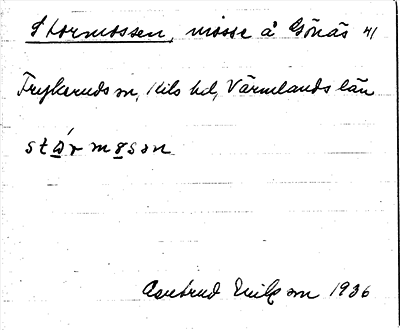 Stormossen, mosse å Gönäs 41
Frykeruds sn, Kils hd, Värmlands län
stórmosan
Eriksson 1936